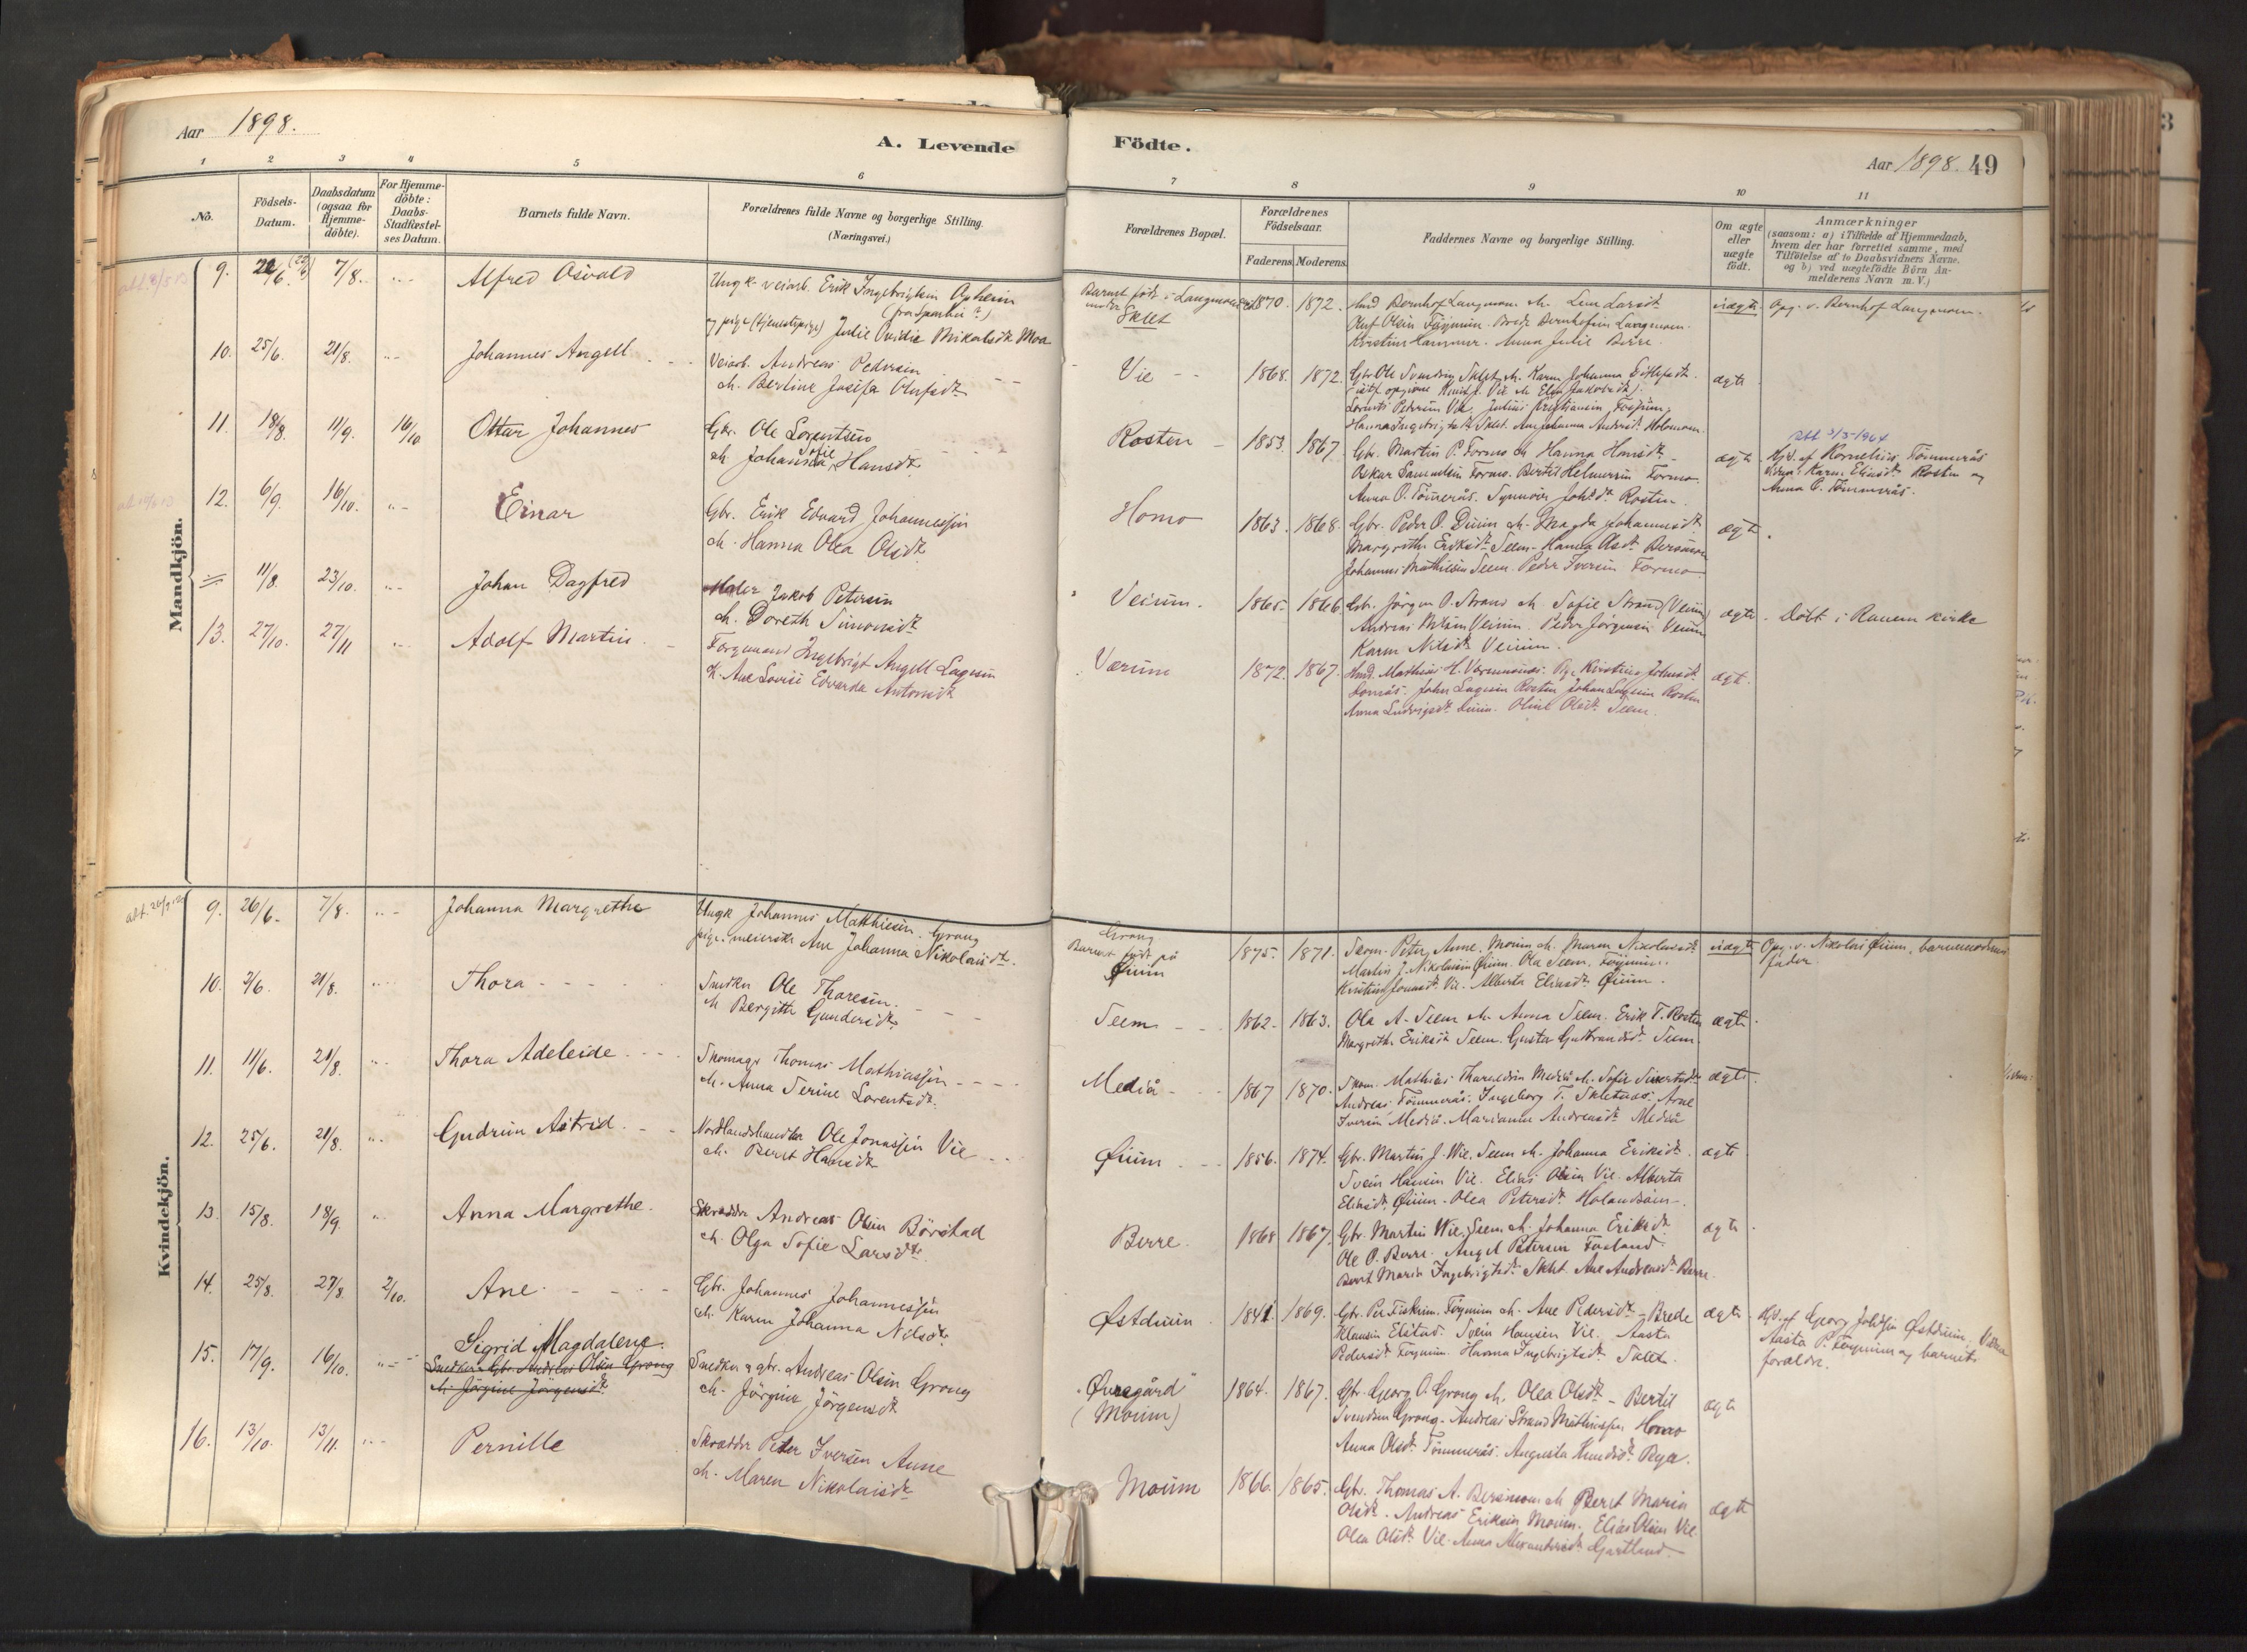 Aar 1898.
A. Levende
Födte.
Aar 1898. 49
1 2 3 4 5 6 7 8 9 10 11
No.
Födsels-
Datum.
Daabsdatum
(ogsaa for
Hjemme-
döbte).
For Hjemme-
döbte:
Daabs-
Stadfæstel-
ses Datum.
Barnets fulde Navn.
Forældrenes fulde Navne og borgerlige Stilling.
(Næringsvei.)
Forældrenes Bopæl.
Forældrenes
Födselsaar.
Faderens. Moderens.
Faddernes Navne og borgerlige Stilling.
Om ægte
eller
uægte
födt.
Anmærkninger
(saasom: a) i Tilfælde af Hjemmedaab,
hvem der har forrettet samme, med
Tilföielse af to Daabsvidners Navne.
og b) ved uægtefödte Börn An-
melderens Navn m. V.)
Mandkjön.
9. 7/8. Alfred Osvald
Ungk. veiarb. Erik Ingebrigtsen Apheim
(fra Sparbu?)
og pige (tjenestepige) Julie Ovidie Nikolaisdtr Moa
Barnet födt i Langmoen
under
Sklet
1870. 1872.
Bernhof Langmoen Lena Larsdtr
Oluf Olsen Töymun. Brede Bernhofsen Langmoen.
Kirstine Hammer. Anna Julie Berre.
uægte. Opg. v. Bernhof Langmoen.
10. 25/6. 21/8. Johannes Angell
Veiarb. Andreas Pedersen
M. Berline Josefa Olufsdtr
Vie 1868. 1872.
Gbr. Ole Svendsen Sklet M. Karen Johanna
Lorents Pedersen Vie. Julius Kristiansen
Hanna Ingebrigtsdtr Sklet.
ægte
11. 18/8. 11/9. 16/10 Ottar Johannes
Gbr. Ole Lorentsen
Sofie
M. Johanna Hansdtr
Rosten 1853. 1867
Gbr. Martin P. Formo M. Hanna Hansdtr
Oskar Samuelsen Formo. Bertil Helmersen Formo.
Anna O. Tömmerås. Synnöve Rosten.
ægte.
Hjd. af Kornelius Tömmerås
Karen Eliasdtr Rosten og
Anna O. Tömmerås.
12. 6/9. 16/10. Einar
Gbr. Erik Edvard Johannessen
M. Hanna Olea Olsdtr
Homo 1863. 1868.
Gbr. Peder O. Duun M. Magda Johannesdtr
Margrethe Eriksdtr Seem. Hanna Olsdtr Bersmoen
Johannes Mathiesen Seem. Peder Iversen Formo.
ægte.
11/8. 23/10. Johan Dagfred
Maler Jakob Petersen
M. Doreth Simonsdtr
Veium. 1865. 1866
Gbr. Jörgen O. Strand M. Sofie Strand (Veium)
Andreas Veium. Peder Jörgensen Veium
Karen Nilsdtr Veium.
ægte. Döbt i Ranem kirke
13. 27/10. 27/11 Adolf Martin
Forgmand Ingebrigt Angell Lagesen
K. Ane Lovise Edvarda Antonsdtr
Værum 1872. 1867.
Mathias H. Pge Kirstine Johnsdtr
John Lagesen Rosten Johan Lagesen Rosten
Anna Ludvigsdtr Oline Olsdtr Seem.
ægte.
Kvindekjön.
9. 26/6. 7/8. Johanna Margrethe
Ungk. Johannes Matthiesen. Grong
pige. meierske Ane Johanna Nikolaisdtr.
Grong
Barnet födt på
Öium
1875. 1871.
Peter, Aune. Moum M. Maren Nikolaisdtr
Martin J. Nikolaisen Öium. Ola Seem.
Kristine Jonasdtr Vie. Alberta Eliasdtr Öium.
uægte Opg. v. Nikolai Öium, barnemoderens
fader.
10. 2/6. 21/8. Thora
Snedker Ole Thoresen.
M. Bergitte Gundersdtr
Seem 1862. 1863.
Ola A. Seem M. Anna Seem. Erik T. Rosten
Margrethe Eriksdtr Seem. Gusta Gulbrandsdtr Seem.
ægte.
11. 11/6. 21/8. Thora Adeleide
Skomager Thomas Mathiassen
M. Anna Serine Lorentsdtr.
Mediå 1867 1870.
Skom. Mathias Tharaldsen Mediå M. Sofie Sivertsdtr
Andreas Tömmerås. Ingeborg T. Arne
Iversen Mediå. Marianne Andreasdtr Mediå
ægte.
12. 25/6. 21/8. Gudrun Astrid
Nordlandshandler Ole Jonassen Vie
M. Beret Hansdtr
Öium 1856. 1874.
Gbr. Martin J. Wie. Seem M. Johanna Eriksdtr.
Svein Hansen Vie. Elias Olsen Vie. Alberta
Eliasdtr Öium. Olea Petersdtr
ægte
13. 15/8. 18/9. Anna Margrethe.
Skrædder Andreas Olsen Börstad
M. Olga Sofie Larsdtr.
Berre. 1868 1867.
Gbr. Martin Wie. Seem M. Johanna Eriksdtr
Ole O. Berre. Angel Petersen Fosland.
Beret Maria Ingebrigtsdtr Sklet Ane Andreasdtr Berre.
ægte
14. 25/8. 27/8. 2/10. Ane
Gbr. Johannes Johannessen
M. Karen Johanna Nilsdtr
Östduun 1841. 1869.
Gbr. Per Fiskum. M. Ane Pedersdtr. Brede
Klausen Elstad. Svein Hansen Vie. Aasta
Pedersdtr Hanna Ingebrigtsdtr Sklet.
ægte
Hjd. af Georg Johssen Östduun.
Aasta P. og barnets
forældre.
15. 17/9. 16/10. Sigrid Magdalene.
Snedker & Gbr. Andreas Olsen Grong
M. Jörgine Jörgensdtr
Snedker & gbr. Andreas Olsen Grong
M. Jörgine Jörgensdtr
"Övregård"
(Moum)
1864. 1867.
Gbr. Georg O. Grong M. Olea Olsdtr - Bertil
Svendsen Grong. Andreas Strand Mathiassen Homo
Anna Olsdtr Tömmerås. Augusta
ægte
16. 13/10. 13/11. Pernille
Skrædder Peter Iversen Aune
M. Maren Nikolaisdtr
Moum 1866. 1865.
Gbr. Thomas A. Bersmoen M Beret Maria
Olsdtr. Andreas Eriksen Moum. Elias Olsen Vie.
Olea Olsdtr Vie. Anna Alexandersdtr Gartland.
ægte